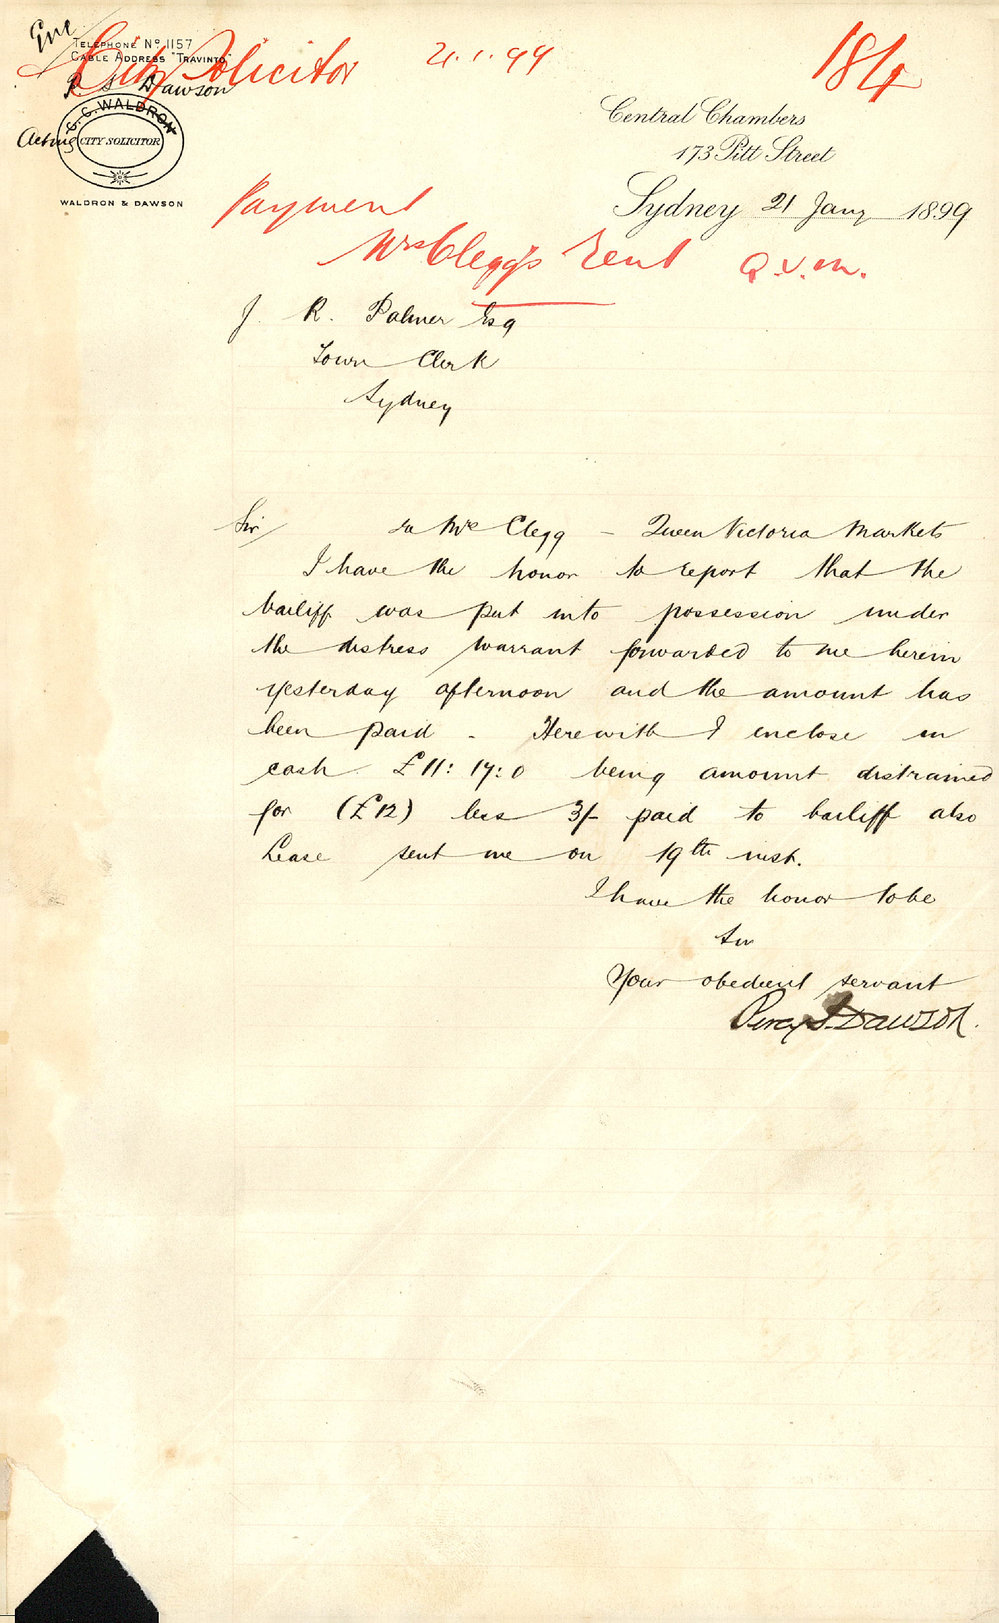 Enc
TELEPHONE No. 1157
CABLE ADDRESS "TRAVINTO"
City Solicitor 21.1.99 184
P S Dawson
C. C. WALDRON
Acting CITY SOLICITOR
WALDRON & DAWSON
Central Chambers
173 Pitt Street
Sydney 21 Jany 1899
Payment
Mrs Clegg's Rent Q.V.M.
J. R. Palmer Esq
Town Clerk
Sydney
Sir
re Mrs Clegg - Queen Victoria Markets
I have the honor to report that the
bailiff was put into possession under
the distress warrant forwarded to me herein
yesterday afternoon and the amount has
been paid - Herewith I enclose in
cash £11:17:0 being amount distrained
for (£12) less 3/- paid to bailiff also
Lease sent me on 19th inst.
I have the honor to be
Sir
Your obedient servant
Percy S. Dawson.